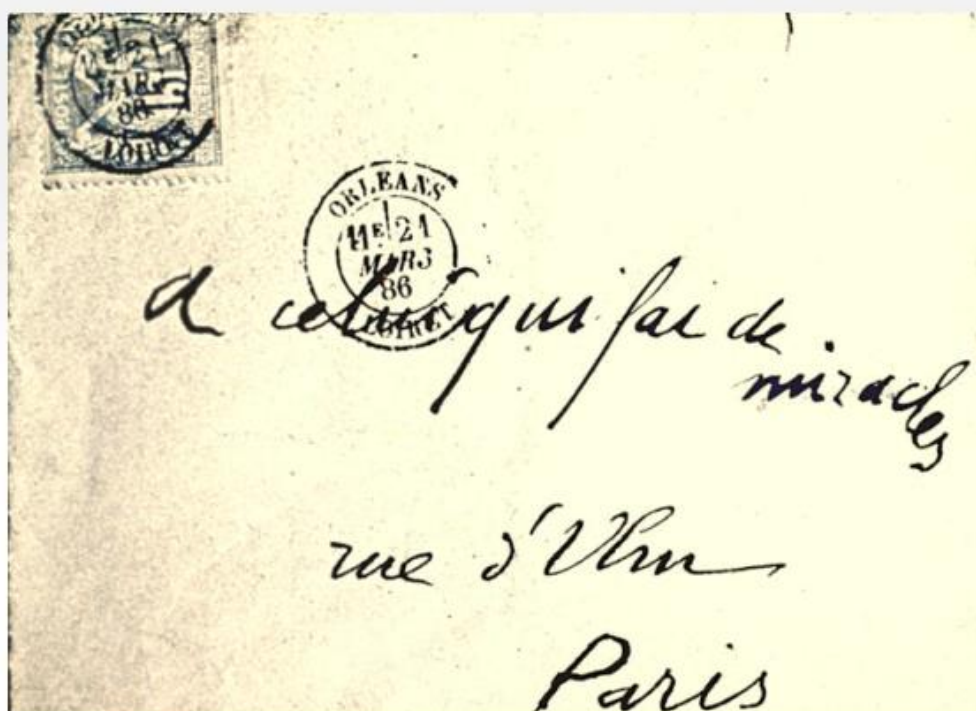 ORLEANS
1E 21
MARS
86
LOIRET
15
21
MAR
86
LOIRET
A celui qui fai de
miracles
rue d'Ulm
Paris